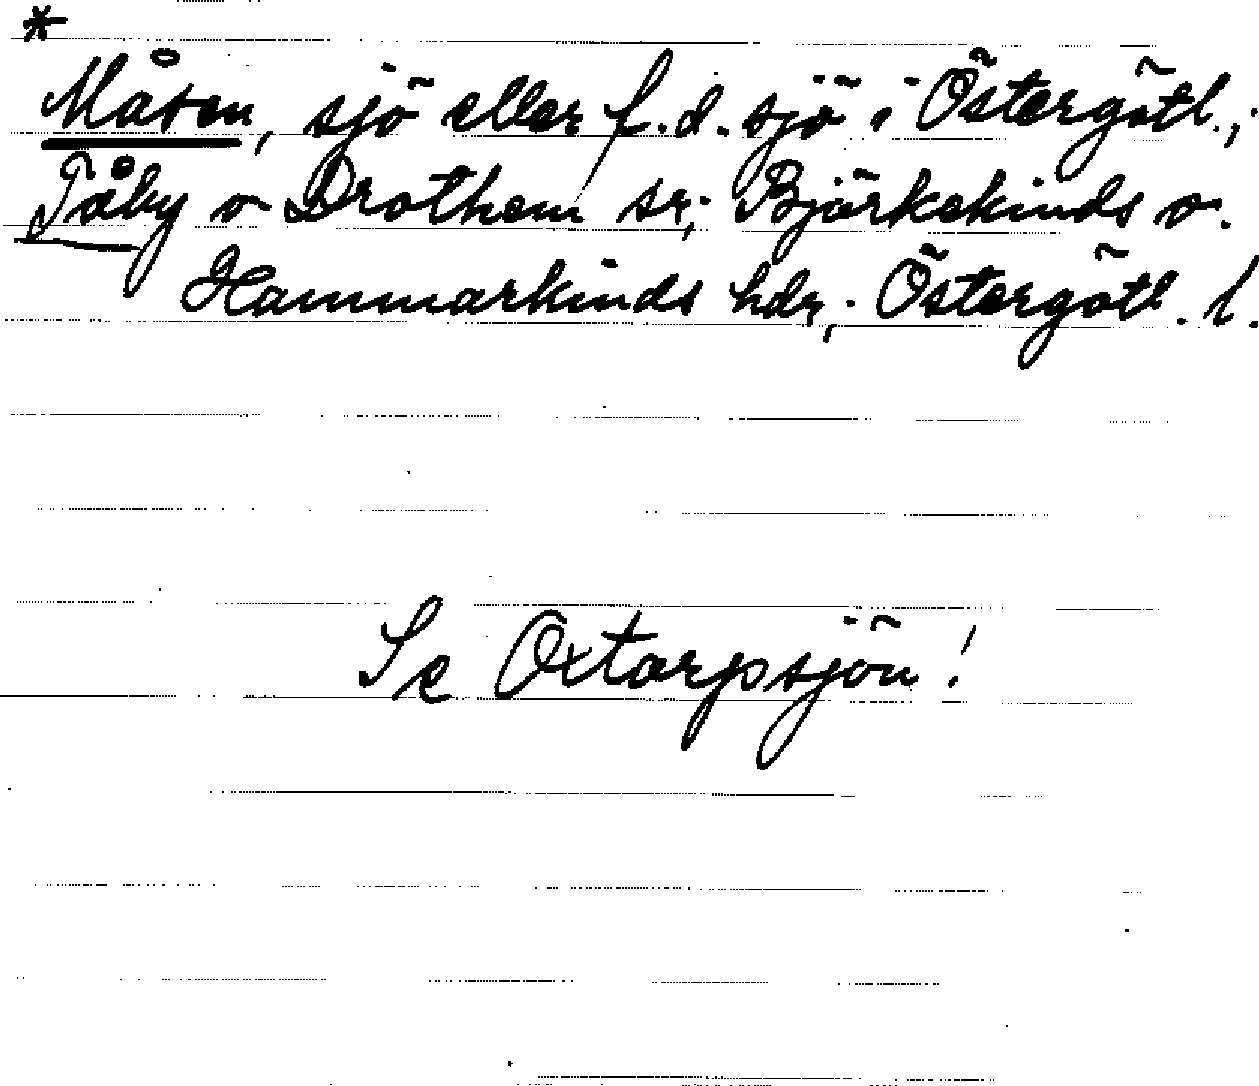 *
Måsen, sjö eller f.d. sjö i Östergötl.;
Tåby o Drothem sr; Björkekinds o.
Hammarkinds hdr; Östergötl. l.
Se Oxtorpsjön!